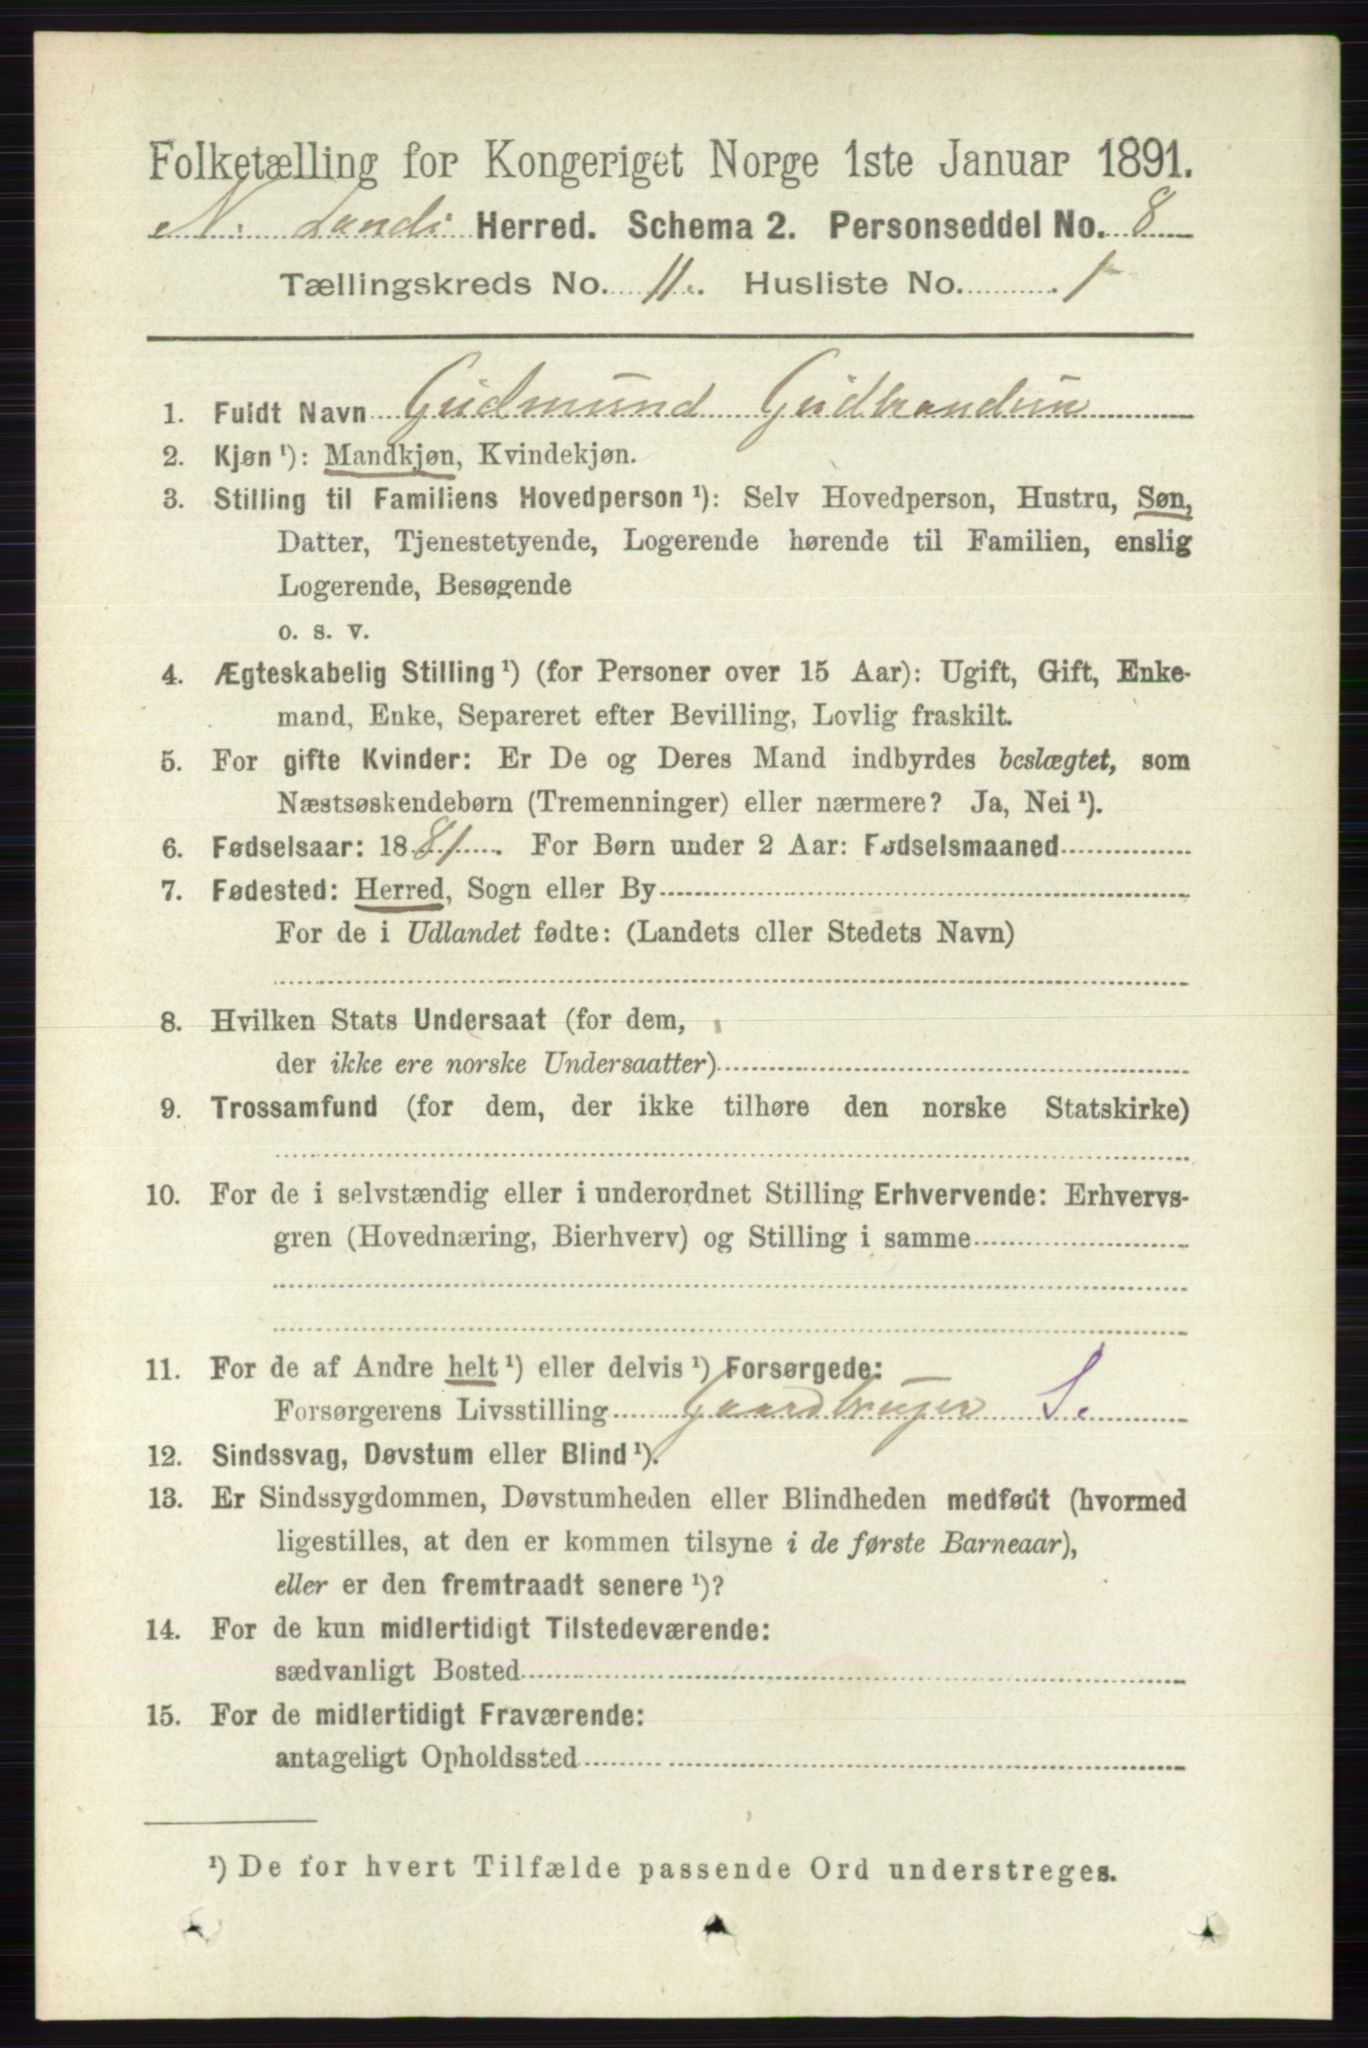 Folketælling for Kongeriget Norge 1ste Januar 1891.
N. Lands Herred. Schema 2. Personseddel No. 8
Tællingskreds No. 11. Husliste No. 1
1. Fuldt Navn Gudmund Gudbrandsen
2. Kjøn ¹): Mandkjøn, Kvindekjøn.
3. Stilling til Familiens Hovedperson ¹): Selv Hovedperson, Hustru, Søn,
Datter, Tjenestetyende, Logerende hørende til Familien, enslig
Logerende, Besøgende
o. s. v.
4. Ægteskabelig Stilling ¹) (for Personer over 15 Aar): Ugift, Gift, Enke-
mand, Enke, Separeret efter Bevilling, Lovlig fraskilt.
5. For gifte Kvinder: Er De og Deres Mand indbyrdes beslægtet, som
Næstsøskendebørn (Tremenninger) eller nærmere? Ja, Nei ¹).
6. Fødselsaar: 1881. For Børn under 2 Aar: Fødselsmaaned
7. Fødested: Herred, Sogn eller By
For de i Udlandet fødte: (Landets eller Stedets Navn)
8. Hvilken Stats Undersaat (for dem,
der ikke ere norske Undersaatter)
9. Trossamfund (for dem, der ikke tilhøre den norske Statskirke)
10. For de i selvstændig eller i underordnet Stilling Erhvervende: Erhvervs-
gren (Hovednæring, Bierhverv) og Stilling i samme
11. For de af Andre helt ¹) eller delvis ¹) Forsørgede:
Forsørgerens Livsstilling Gaardbruger S.
12. Sindssvag, Døvstum eller Blind ¹).
13. Er Sindssygdommen, Døvstumheden eller Blindheden medfødt (hvormed
ligestilles, at den er kommen tilsyne i de første Barneaar),
eller er den fremtraadt senere ¹)?
14. For de kun midlertidigt Tilstedeværende:
sædvanligt Bosted
15. For de midlertidigt Fraværende:
antageligt Opholdssted
¹) De for hvert Tilfælde passende Ord understreges.